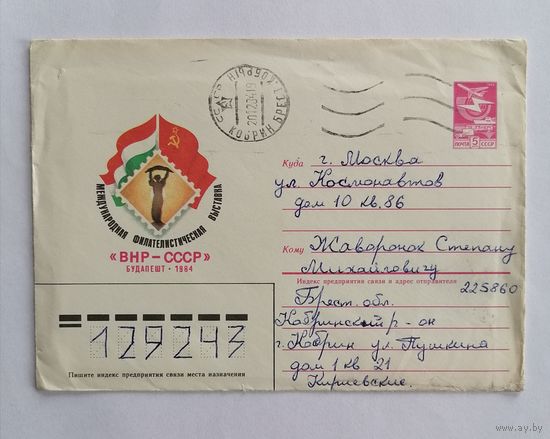 КОБРЫН БРЕСТ.
КОБРИН БРЕСТ
ПОЧТА 5 СССР
МЕЖДУНАРОДНАЯ ФИЛАТЕЛИСТИЧЕСКАЯ ВЫСТАВКА
«ВНР–СССР»
БУДАПЕШТ • 1984
Куда г. Москва
ул. Космонавтов
дом 10 кв. 86
Кому Жаворонок Степану
Михайловичу
Индекс предприятия связи и адрес отправителя
225860
Брест. обл.
Кобринский р-он
г. Кобрин ул. Пушкина
дом 1 кв 21
Кириевские.
129243
Пишите индекс предприятия связи места назначения
www.ay.by